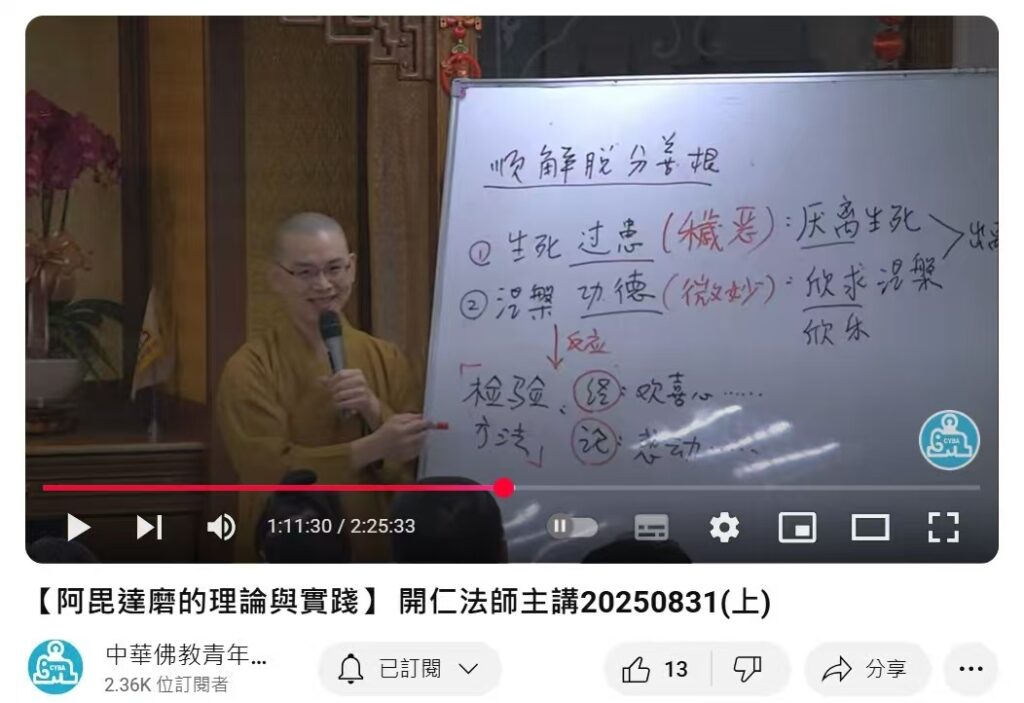 顺解脱分善根
① 生死 过患 (穢恶): 厌离生死 出离
② 涅槃 功德 (微妙): 欣求涅槃
欣乐
反应
「检验 经: 欢喜心……
方法」 论: 感动……
CYBA
1:11:30 / 2:25:33
【阿毘達磨的理論與實踐】 開仁法師主講20250831(上)
CYBA
中華佛教青年...
已訂閱
13
分享
2.36K 位訂閱者